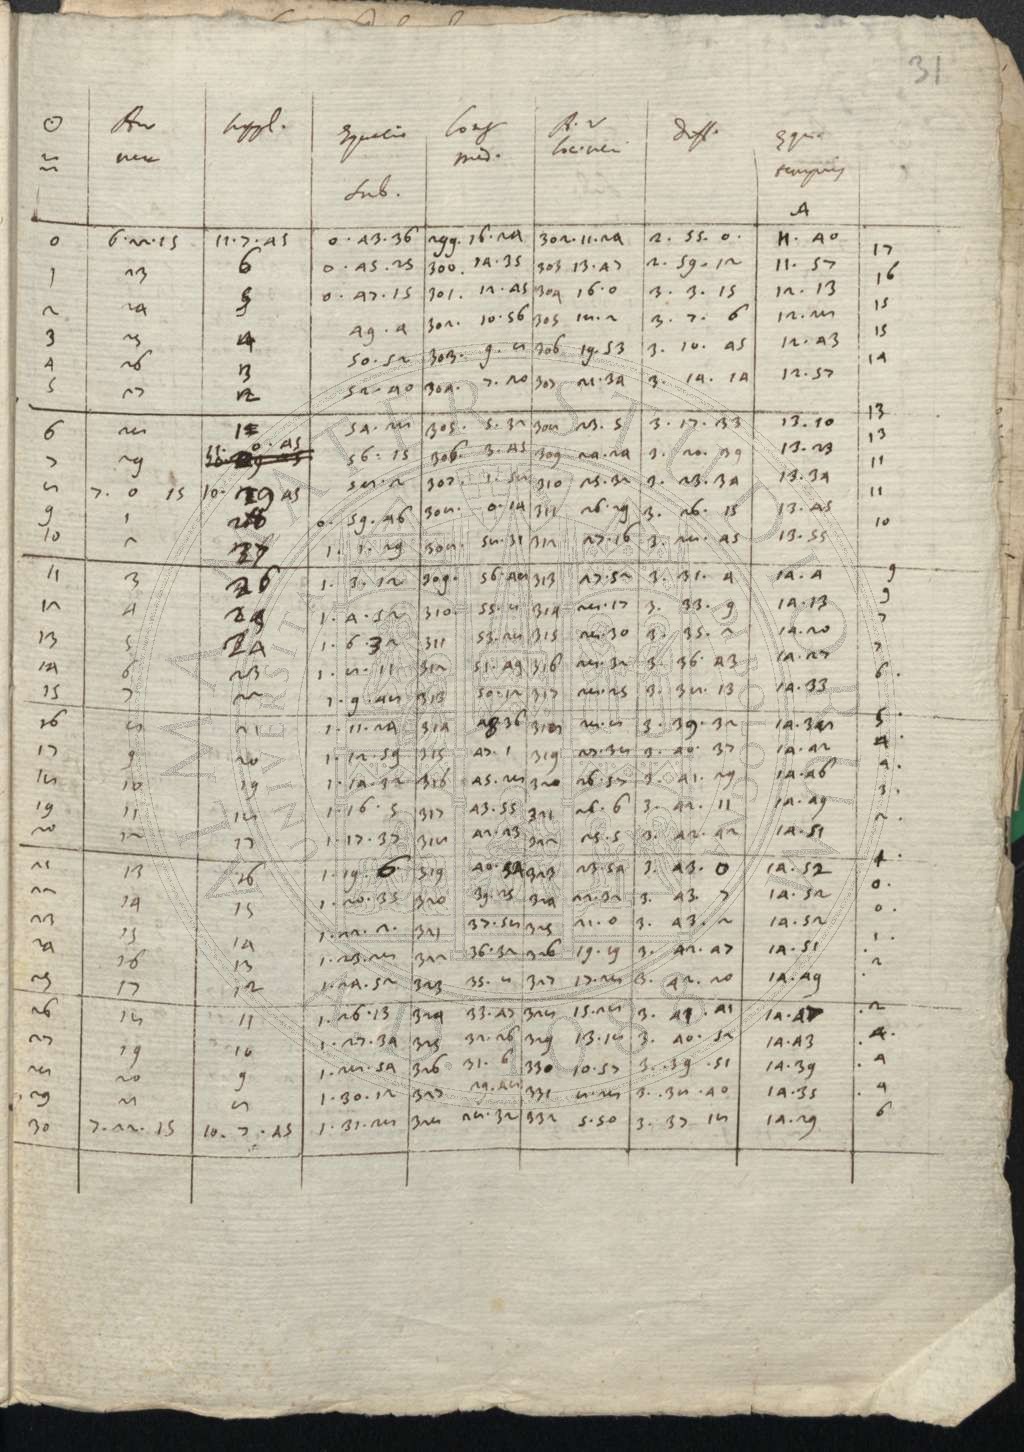 31
☉ An suppl. Equatio Long A. v Diff. Equa
♒ vera med. loc. ver temporis
Sub. A
0 6.22.15 11.7.45 0.43.36 299.16.24 302.11.24 2.55.0. 11.40 17
1 23 6 0.45.25 300.14.35 303 13.47 2.59.12 11.57 16
2 24 5 0.47.15 301.12.45 304 16.0 3.3.15 12.13 15
3 25 4 49.4 302.10.56 305 18.2 3.7.6 12.28 15
4 26 3 50.52 303.9.8 306 19.53 3.10.45 12.43 14
5 27 2 52.40 304.7.20 307 21.34 3.14.14 12.57
6 28 1 54.28 305.5.32 308 23.5 3.17.33 13.10 13
7 29 0.45 56.15 306.3.45 309 24.24 3.20.39 13.23 13
8 7.0 15 10.29 45 58.2 307.1.58 310 25.32 3.23.34 13.34 11
9 1 28 0.59.46 308.0.14 311 26.29 3.26.15 13.45 11
10 2 27 1.1.29 308.58.31 312 27.16 3.28.45 13.55 10
11 3 26 1.3.12 309.56.48 313 27.52 3.31.4 14.4 9
12 4 25 1.4.52 310.55.8 314 28.17 3.33.9 14.13 9
13 5 24 1.6.32 311 53.28 315 28.30 3.35.2 14.20 7
14 6 23 1.8.11 312 51.49 316 28.32 3.36.43 14.27 7
15 7 22 1.9.48 313 50.12 317 28.25 3.38.13 14.33 6.
16 8 21 1.11.24 314 48 36 318 28.8 3.39.32 14.38 5.
17 9 20 1.12.59 315 47.1 319 27.38 3.40.37 14.42 4.
18 10 19 1.14.32 316 45.28 320 26.57 3.41.29 14.46 4.
19 11 18 1.16.5 317 43.55 321 26.6 3.42.11 14.49 3.
20 12 17 1.17.37 318 42.23 322 25.5 3.42.42 14.51 2.
21 13 16 1.19.6 319 40.54 323 23.54 3.43.0 14.52 1.
22 14 15 1.20.35 320 39.25 324 22.32 3.43.7 14.52 0.
23 15 14 1.22.2. 321 37.58 325 21.0 3.43.2 14.52 0.
24 16 13 1.23.28 322 36.32 326 19.19 3.42.47 14.51 .1.
25 17 12 1.24.52 323 35.8 327 17.28 3.42.20 14.49 .2
26 18 11 1.26.13 324 33.47 328 15.28 3.41.41 14.47 .2
27 19 10 1.27.34 325 32.26 329 13.18 3.40.52 14.43 .4.
28 20 9 1.28.54 326 31.6 330 10.57 3.39.51 14.39 .4
29 21 8 1.30.12 327 29.48 331 8.28 3.38.40 14.35 .4
30 7.22.15 10.7.45 1.31.28 328 28.32 332 5.50 3.37 18 14.29 6